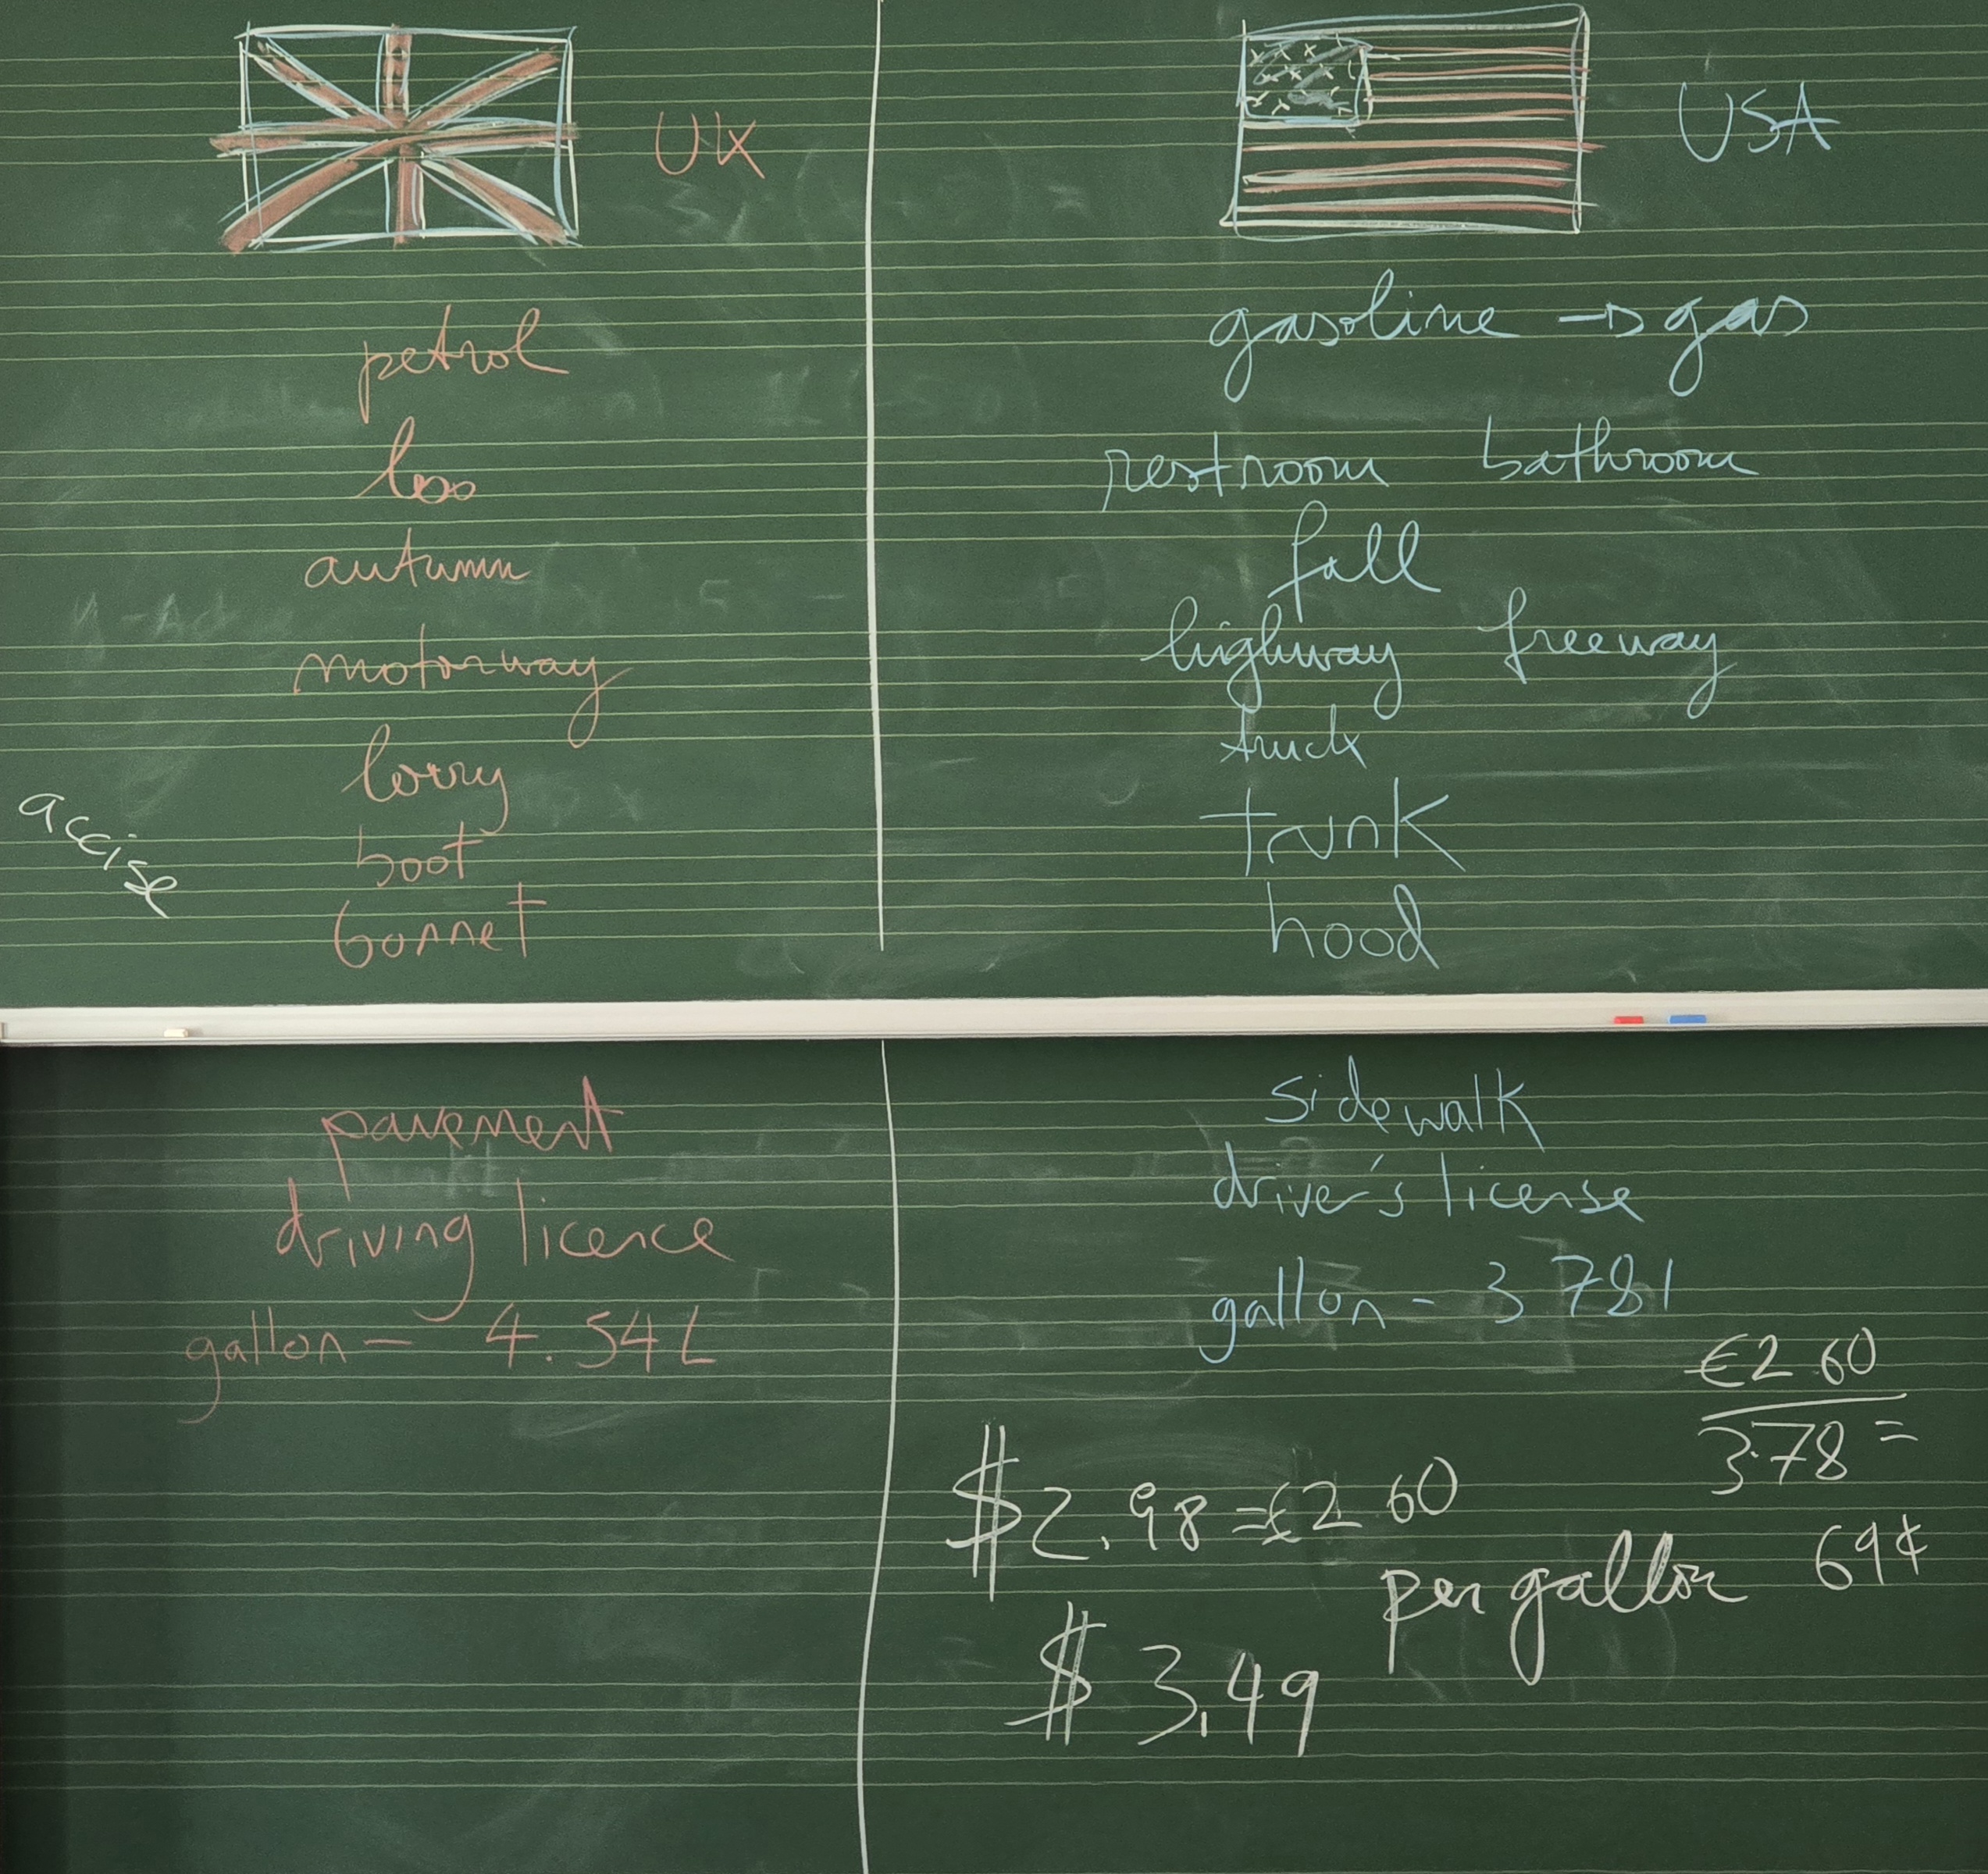 UK
petrol
loo
autumn
motorway
lorry
boot
bonnet
accise
pavement
driving licence
gallon - 4.54L
USA
gasoline → gas
restroom bathroom
fall
highway freeway
truck
trunk
hood
sidewalk
driver's license
gallon - 3 78 l
€2 60
3.78 =
69¢
$2.98 = €2 60
per gallon
$3.49